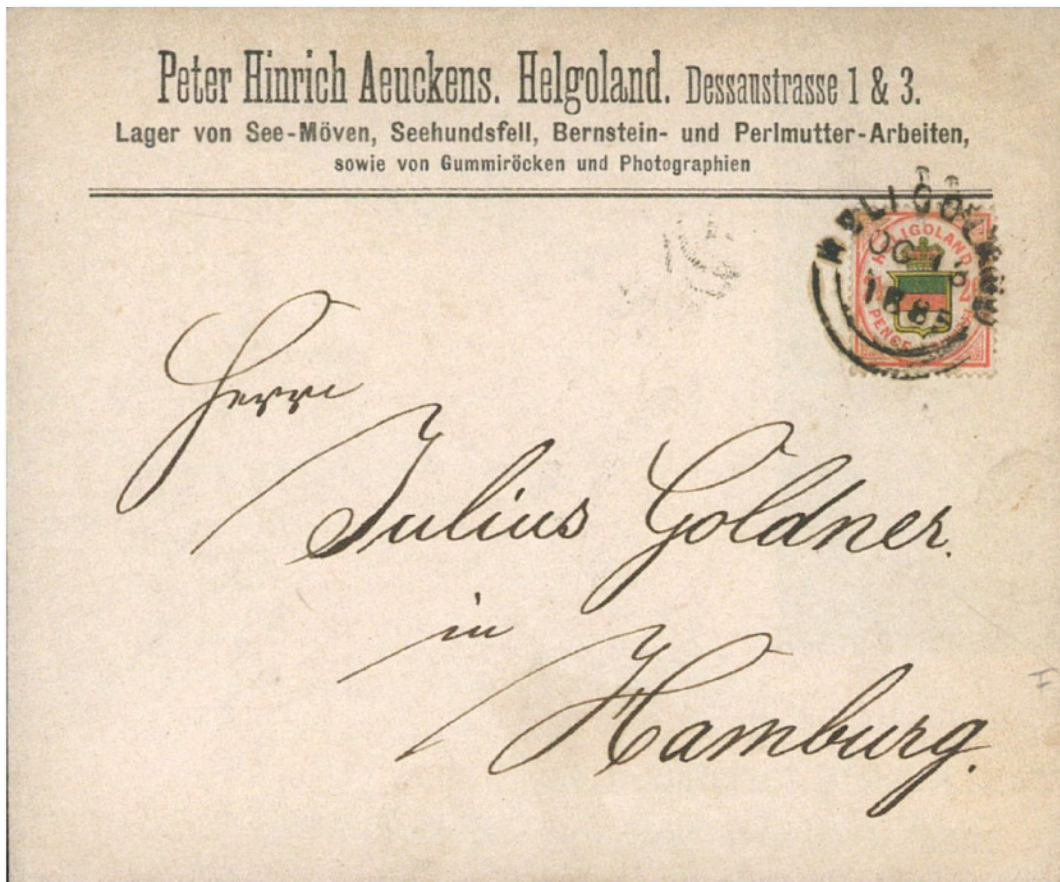 Peter Hinrich Aeuckens. Helgoland. Dessaustrasse 1 & 3.
Lager von See-Möven, Seehundsfell, Bernstein- und Perlmutter-Arbeiten,
sowie von Gummiröcken und Photographien
HELIGOLAND
OC 18
188
HELIGOLAND
PENCE
Herrn
Julius Goldner.
in
Hamburg.